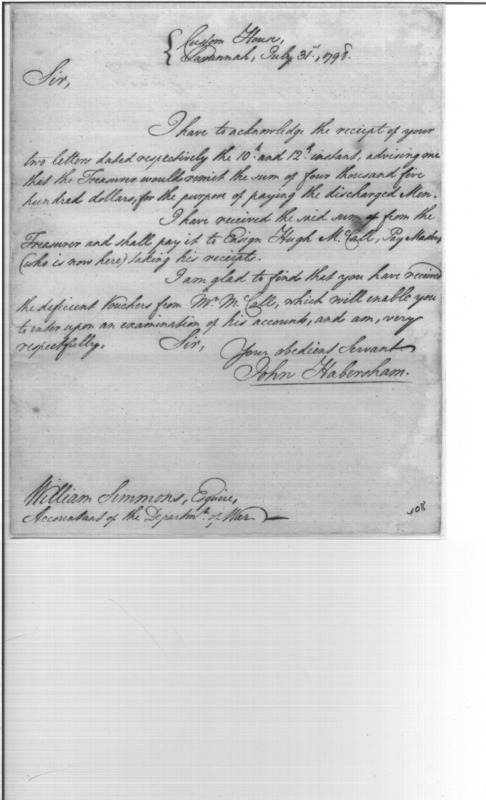 Custom House,
Savannah, July 31st, 1798.
Sir,
I have to acknowledge the receipt of your
two letters dated respectively the 10th and 12th instant, advising me
that the Treasurer would remit the sum of four thousand five
hundred dollars, for the purpose of paying the discharged Men.
I have received the said sum of from the
Treasurer and shall pay it to Ensign Hugh McCall, Pay Master,
(who is now here) taking his receipts.
I am glad to find that you have received
the deficient Vouchers from Mr. McCall, which will enable you
to enter upon an examination of his accounts, and am, very
respectfully, Sir, Your obedient Servant
John Habersham.
William Simmons, Esquire,
Accountant of the Departmt. of War.
108